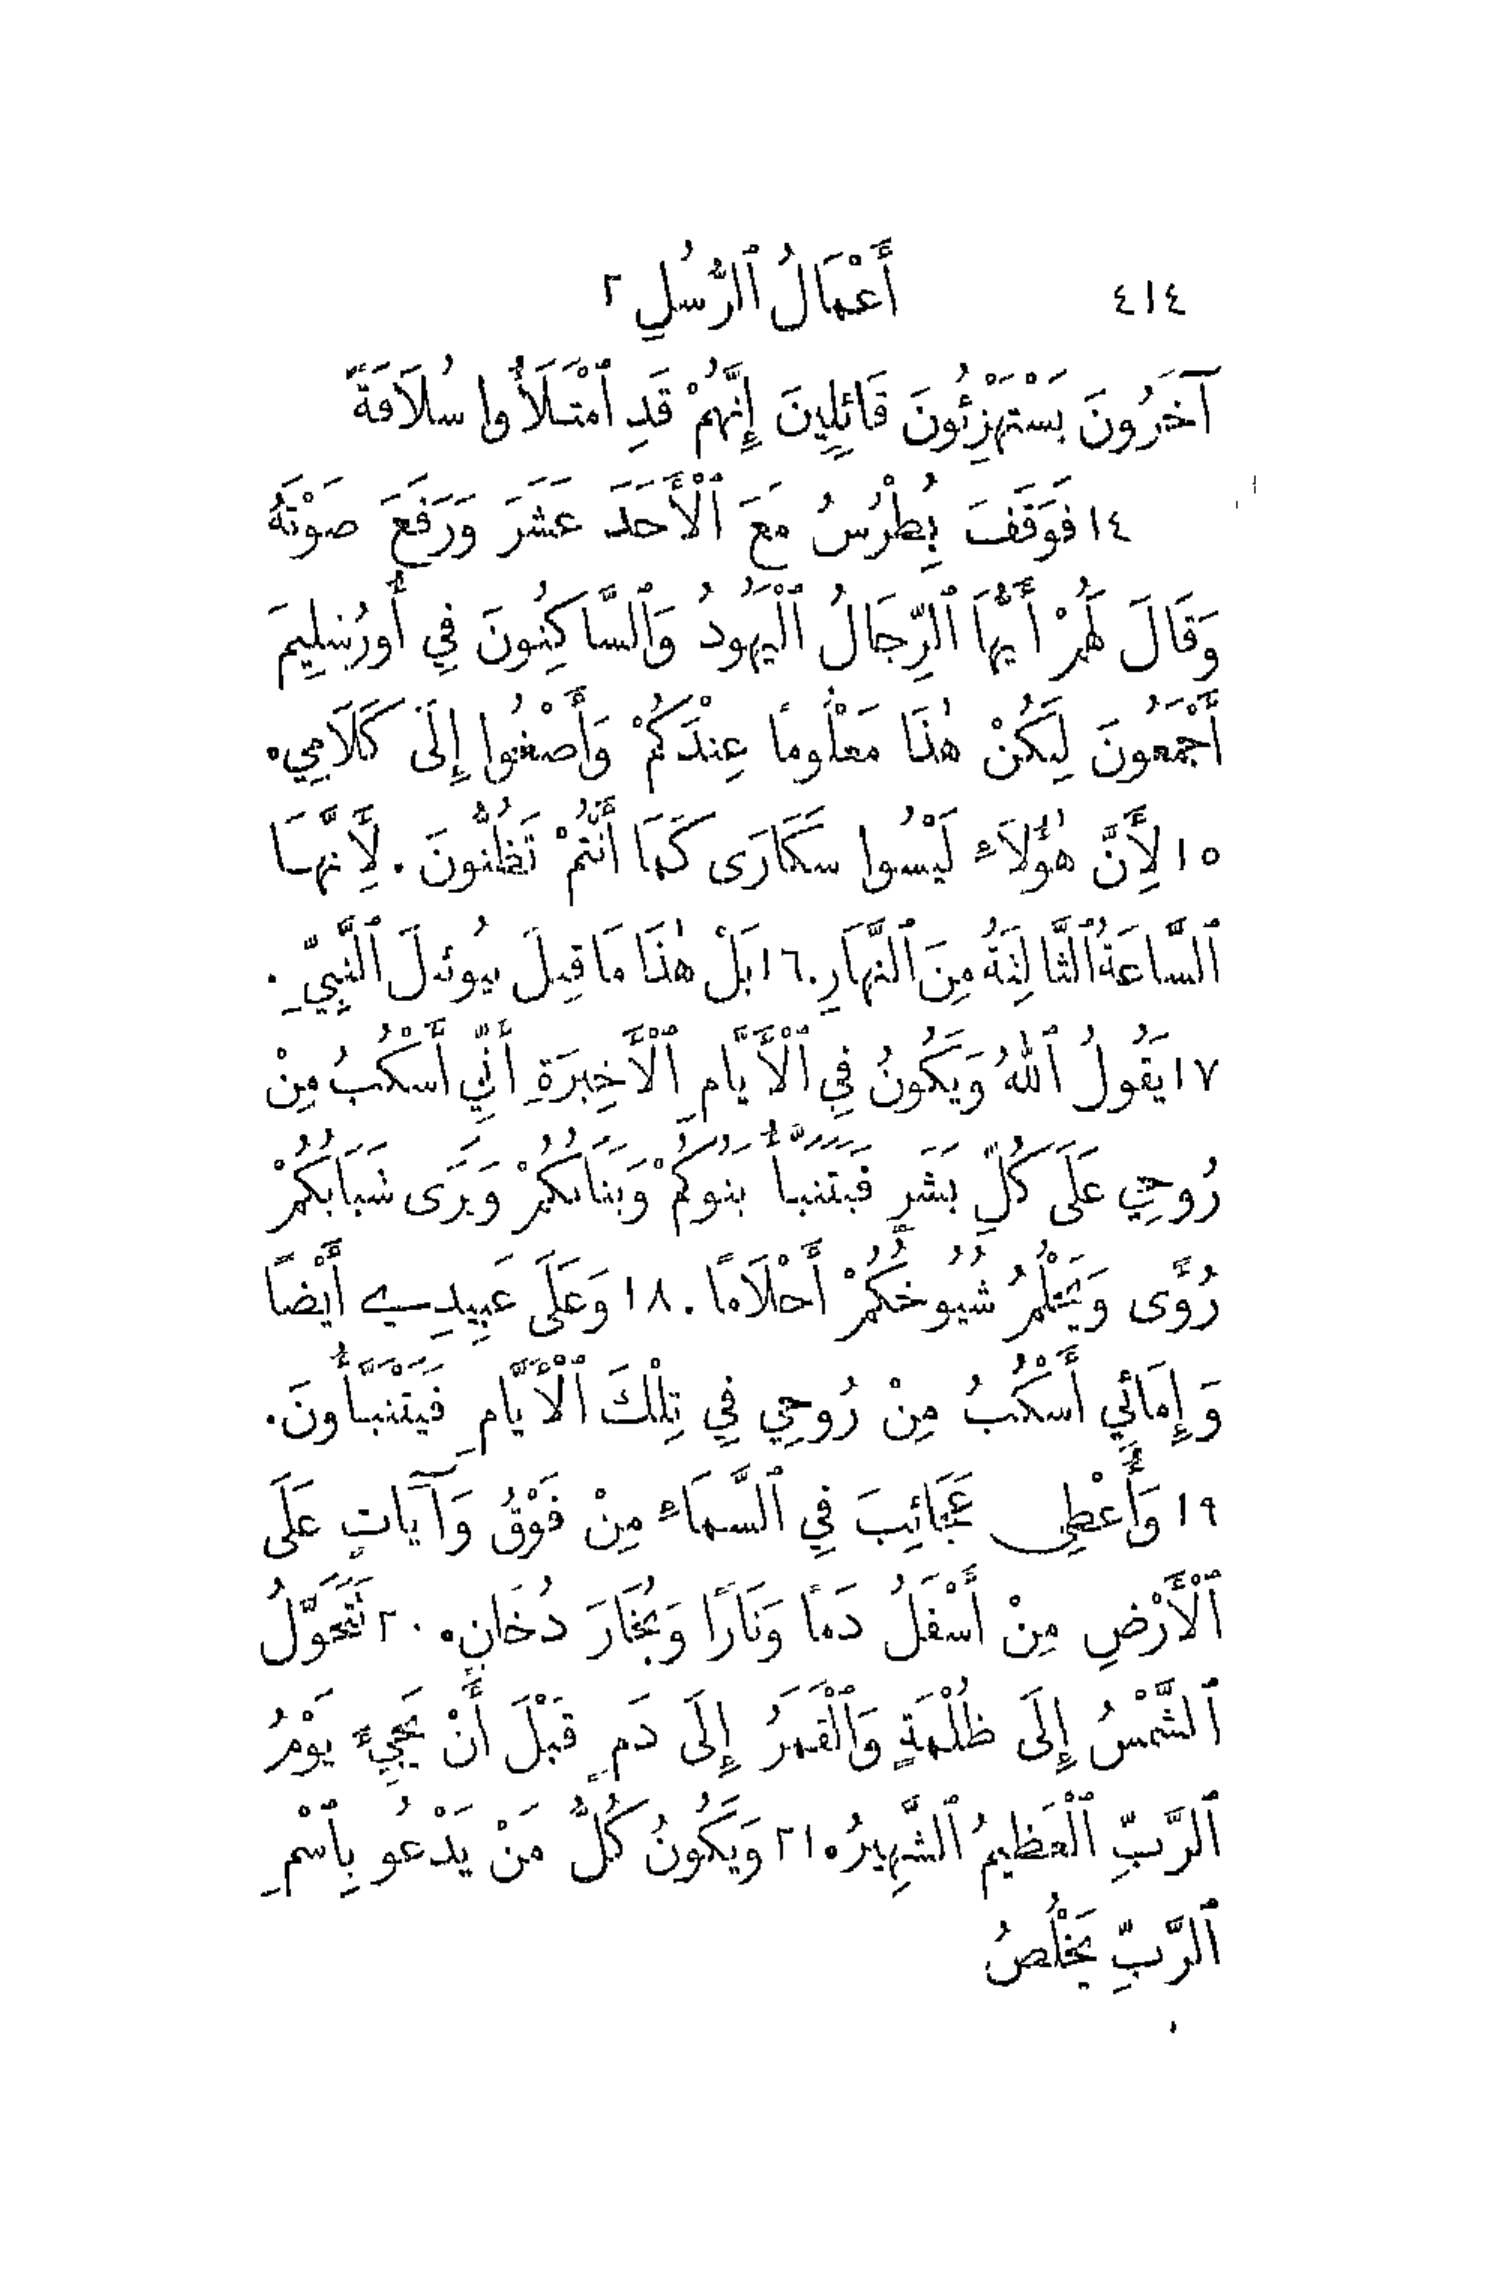 ٤١٤ أَعْمَالُ ٱلرُّسُلِ ٢
آخَرُونَ يَسْتَهْزِئُونَ قَائِلِينَ إِنَّهُمْ قَدِ ٱمْتَلَأُوا سُلاَفَةً
١٤ فَوَقَفَ بُطْرُسُ مَعَ ٱلْأَحَدَ عَشَرَ وَرَفَعَ صَوْتَهُ
وَقَالَ لَهُمْ أَيُّهَا ٱلرِّجَالُ ٱلْيَهُودُ وَٱلسَّاكِنُونَ فِي أُورُشَلِيمَ
أَجْمَعُونَ لِيَكُنْ هٰذَا مَعْلُومًا عِنْدَكُمْ وَأَصْغُوا إِلَى كَلَامِي.
١٥ لِأَنَّ هٰؤُلَاءِ لَيْسُوا سَكَارَى كَمَا أَنْتُمْ تَظُنُّونَ. لِأَنَّهَا
ٱلسَّاعَةُ ٱلثَّالِثَةُ مِنَ ٱلنَّهَارِ. ١٦ بَلْ هٰذَا مَا قِيلَ بِيُوئِلَ ٱلنَّبِيِّ.
١٧ يَقُولُ ٱللهُ وَيَكُونُ فِي ٱلْأَيَّامِ ٱلْأَخِيرَةِ أَنِّي أَسْكُبُ مِنْ
رُوحِي عَلَى كُلِّ بَشَرٍ فَيَتَنَبَّأُ بَنُوكُمْ وَبَنَاتُكُمْ وَيَرَى شَبَابُكُمْ
رُؤًى وَيَحْلُمُ شُيُوخُكُمْ أَحْلَامًا. ١٨ وَعَلَى عَبِيدِي أَيْضًا
وَإِمَائِي أَسْكُبُ مِنْ رُوحِي فِي تِلْكَ ٱلْأَيَّامِ فَيَتَنَبَّأُونَ.
١٩ وَأُعْطِي عَجَائِبَ فِي ٱلسَّمَاءِ مِنْ فَوْقُ وَآيَاتٍ عَلَى
ٱلْأَرْضِ مِنْ أَسْفَلُ دَمًا وَنَارًا وَبُخَارَ دُخَانٍ. ٢٠ تَتَحَوَّلُ
ٱلشَّمْسُ إِلَى ظُلْمَةٍ وَٱلْقَمَرُ إِلَى دَمٍ قَبْلَ أَنْ يَجِيءَ يَوْمُ
ٱلرَّبِّ ٱلْعَظِيمُ ٱلشَّهِيرُ. ٢١ وَيَكُونُ كُلُّ مَنْ يَدْعُو بِٱسْمِ
ٱلرَّبِّ يَخْلُصُ